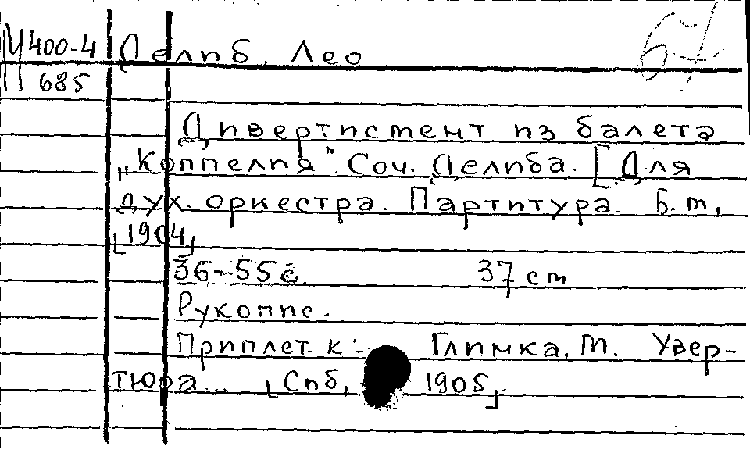 М 400-4 Делиб, Лео
685
Дивертисмент из балета
„Коппелия". Соч. Делиба. [Для
дух. оркестра. Партитура. Б.м.,
[1904]
36-55 с. 37 cm
Рукопис.
Приплет к: Глинка, М. Увер-
тюра... [Спб, 1905]